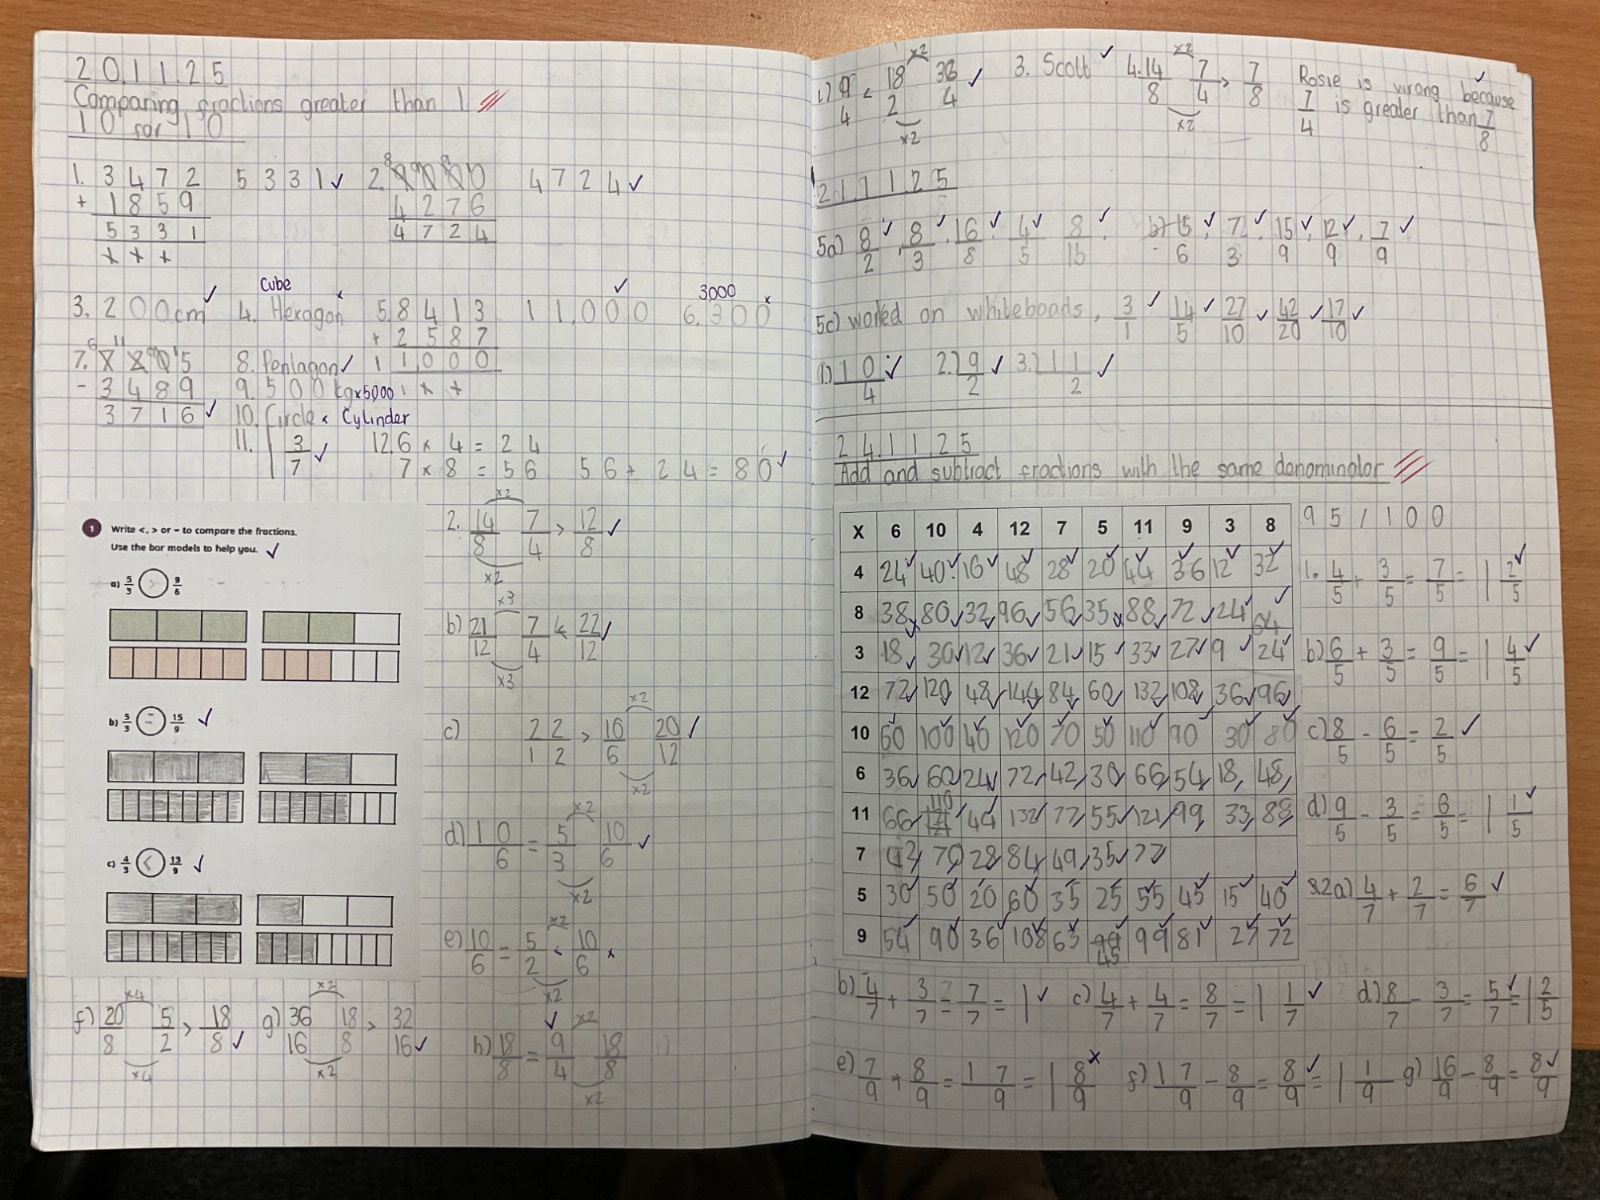 20.11.25
Comparing fractions greater than 1
10 for 10
1. 3472 5331 ✓ 2. 9000 4724 ✓
+ 1859 4276
5331 4724
Cube
3. 200cm ✓ 4. Hexagon x 5. 8413 11,000 ✓ 6. 300 x 3,000
+ 2587
11000
7. 7205 8. Pentagon ✓
- 3489 9. 500 kg x 5,000
3716 ✓ 10. Circle x Cylinder
11. 1 3/7 ✓ 12. 6 × 4 = 24
7 × 8 = 56 56 + 24 = 80 ✓
1 Write <, > or = to compare the fractions.
Use the bar models to help you. ✓
a) 5/3 > 9/6
b) 5/3 = 15/9 ✓
c) 4/3 < 13/9 ✓
2. 14/8 7/4 > 12/8 ✓
×2
×2
b) 21/12 7/4 < 22/12 ✓
×3
×3
c) 22/12 > 10/6 20/12 ✓
×2
×2
d) 10/6 = 5/3 10/6 ✓
×2
×2
e) 10/6 = 5/2 < 10/6 x
×2
×2
f) 20/8 5/2 > 18/8 ✓
×4
×4
g) 36/16 18/8 > 32/16 ✓
×2
×2
h) 18/8 = 9/4 18/8 ✓
×2
×2
i) 9/4 < 18/2 36/4 ✓ 3. Scott ✓ 4. 14/8 7/4 > 7/8 Rosie is wrong because ✓
×2 ×2 7/4 is greater than 7/8
×2 ×2
21.11.25
5a) 8/2 ✓, 8/3 ✓, 16/8 ✓, 4/5 ✓, 8/15 ✓ b) 15/6 ✓, 7/3 ✓, 15/9 ✓, 12/9 ✓, 7/9 ✓
5c) worked on whiteboads, 3/1 ✓ 14/5 ✓ 27/10 ✓ 42/20 ✓ 17/10 ✓
1) 10/4 ✓ 2. 9/2 ✓ 3. 11/2 ✓
24.11.25
Add and subtract fractions with the same donominator
X 6 10 4 12 7 5 11 9 3 8
4 24 40 16 48 28 20 44 36 12 32
8 38 80 32 96 56 35 88 72 24 64
3 18 30 12 36 21 15 33 27 9 24
12 72 120 48 144 84 60 132 108 36 96
10 60 100 40 120 70 50 110 90 30 80
6 36 60 24 72 42 30 66 54 18 48
11 66 110 44 132 77 55 121 99 33 88
7 42 70 28 84 49 35 77
5 30 50 20 60 35 25 55 45 15 40
9 54 90 36 108 63 45 99 81 27 72
95/100
1. 4/5 + 3/5 = 7/5 = 1 2/5 ✓
b) 6/5 + 3/5 = 9/5 = 1 4/5 ✓
c) 8/5 - 6/5 = 2/5 ✓
d) 9/5 - 3/5 = 6/5 = 1 1/5 ✓
2a) 4/7 + 2/7 = 6/7 ✓
b) 4/7 + 3/7 = 7/7 = 1 ✓ c) 4/7 + 4/7 = 8/7 = 1 1/7 ✓ d) 8/7 - 3/7 = 5/7 ✓ = 1 2/5
e) 7/9 + 8/9 = 17/9 = 1 8/9 x f) 17/9 - 8/9 = 8/9 ✓ = 1 1/9 g) 16/9 - 8/9 = 8/9 ✓